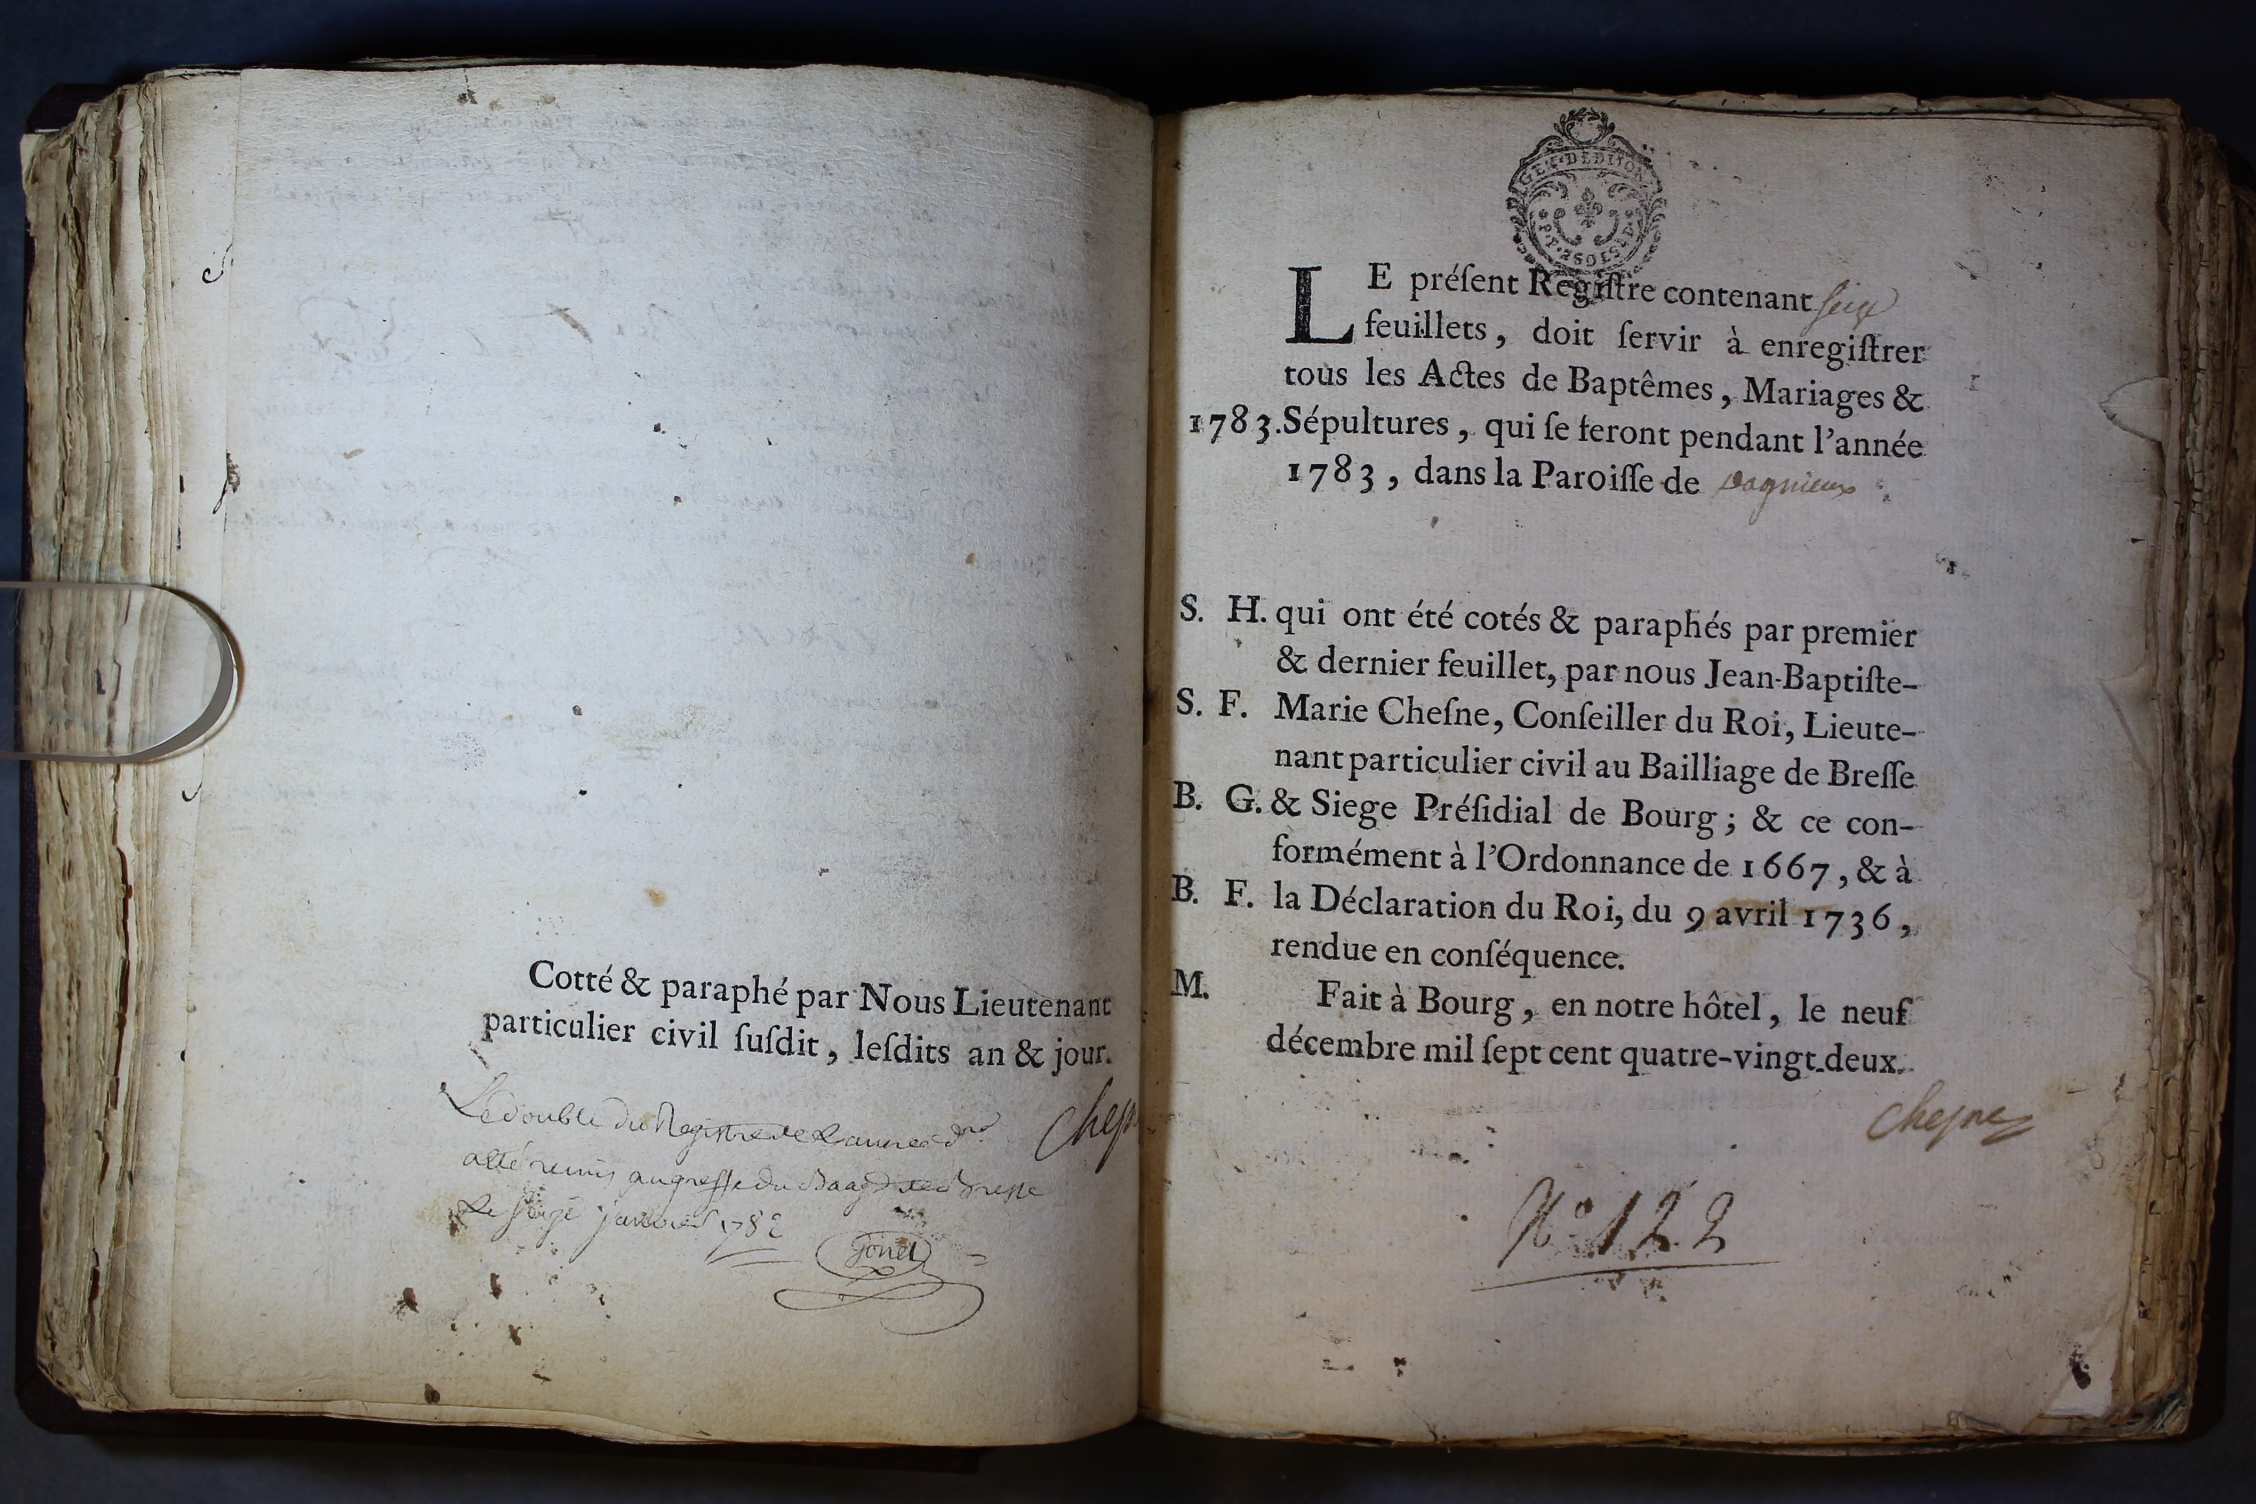 Cotté & paraphé par Nous Lieutenant
particulier civil ſuſdit, leſdits an & jour.
Le double du Registre de L'année dre
a été remis au greffe du Baage de Bresse
Le seize janvier 1782
Gonet
GET. DEDITON.
LE préſent Regiſtre contenant seize
feuillets, doit ſervir à enregiſtrer
tous les Actes de Baptêmes, Mariages &
1783. Sépultures, qui ſe feront pendant l'année
1783, dans la Paroiſſe de dagnieux
S. H. qui ont été cotés & paraphés par premier
& dernier feuillet, par nous Jean-Baptiſte-
S. F. Marie Cheſne, Conſeiller du Roi, Lieute-
nant particulier civil au Bailliage de Breſſe
B. G. & Siege Préſidial de Bourg; & ce con-
formément à l'Ordonnance de 1667, & à
B. F. la Déclaration du Roi, du 9 avril 1736,
rendue en conſéquence.
M. Fait à Bourg, en notre hôtel, le neuf
décembre mil ſept cent quatre-vingt-deux.
Chesne
N° 122